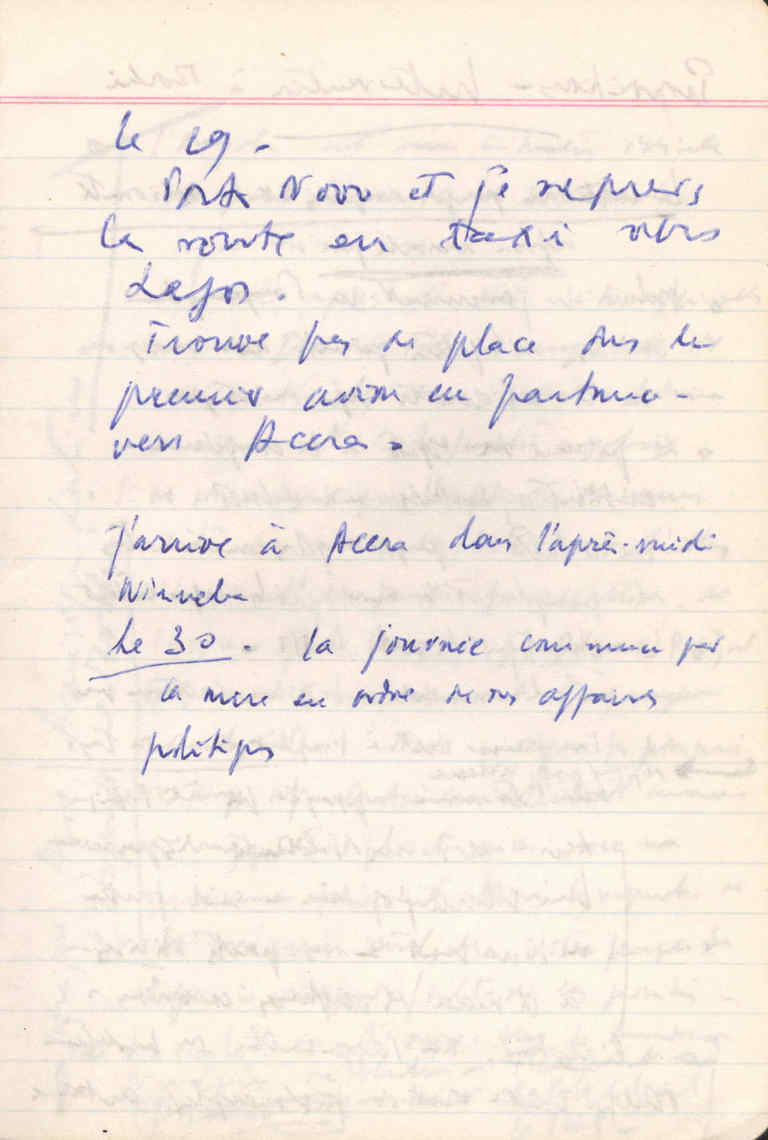 Le 29.
Porto Novo et je reprends
la route en taxi vers
Lagos.
Trouve pas de place dans le
premier avion en partance
vers Accra.
J'arrive à Accra dans l'après-midi
Winneba
Le 30. La journée commence par
la mise en ordre de mes affaires
politiques